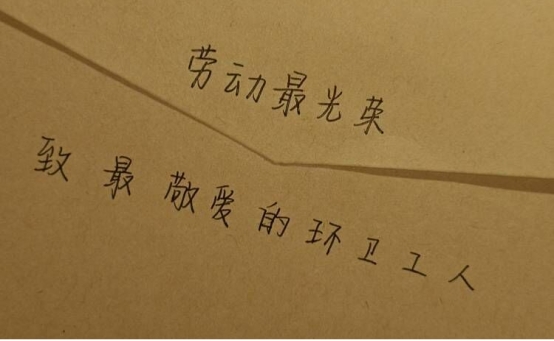 劳动最光荣
致最敬爱的环卫工人